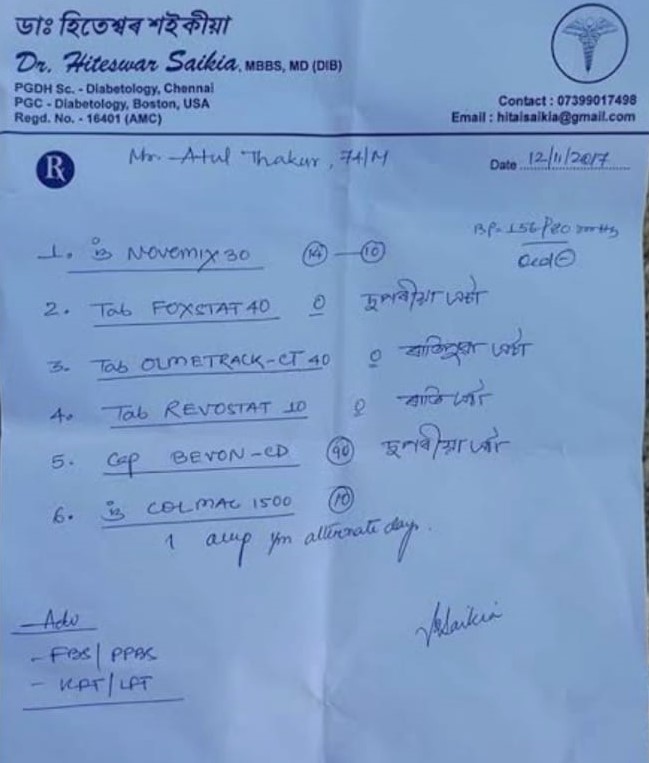 ডাঃ হিতেশ্বৰ শইকীয়া
Dr. Hiteswar Saikia, MBBS, MD (DIB)
PGDH Sc. - Diabetology, Chennai
PGC - Diabetology, Boston, USA
Regd. No. - 16401 (AMC)
Contact : 07399017498
Email : hitaisaikia@gmail.com
Rx
Mr. Atul Thakur, 74/M
Date 12/11/2017
BP- 156/80 mmHg
1. NOVOMIX 30 (14) — (10)
2. Tab FOXSTAT 40 দুপৰীয়া এটা
3. Tab OLMETRACK-CT 40 ৰাতিপুৱা এটা
4. Tab REVOSTAT 10 ৰাতি এটা
5. Cap BEVON-CD (90) দুপৰীয়া এটা
6. COLMAC 1500 (10)
1 amp alternate day.
Adv
- FBS/PPBS
- KFT/LFT
Saikia